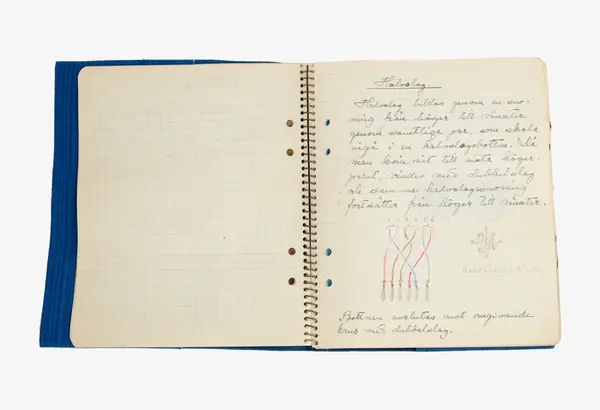 Halvslag.
Halvslag bildas genom en sno-
ning från höger till vänster
genom samtliga par, som skola
ingå i en halvslagsbotten. Då
man kom̅it till sista höger
paret, vändes med dubbelslag
och samma halvslagssnoning
fortsätter från höger till vänster.
Halvslagsbotten
Bottnen avslutas mot omgivande
med dubbelslag.